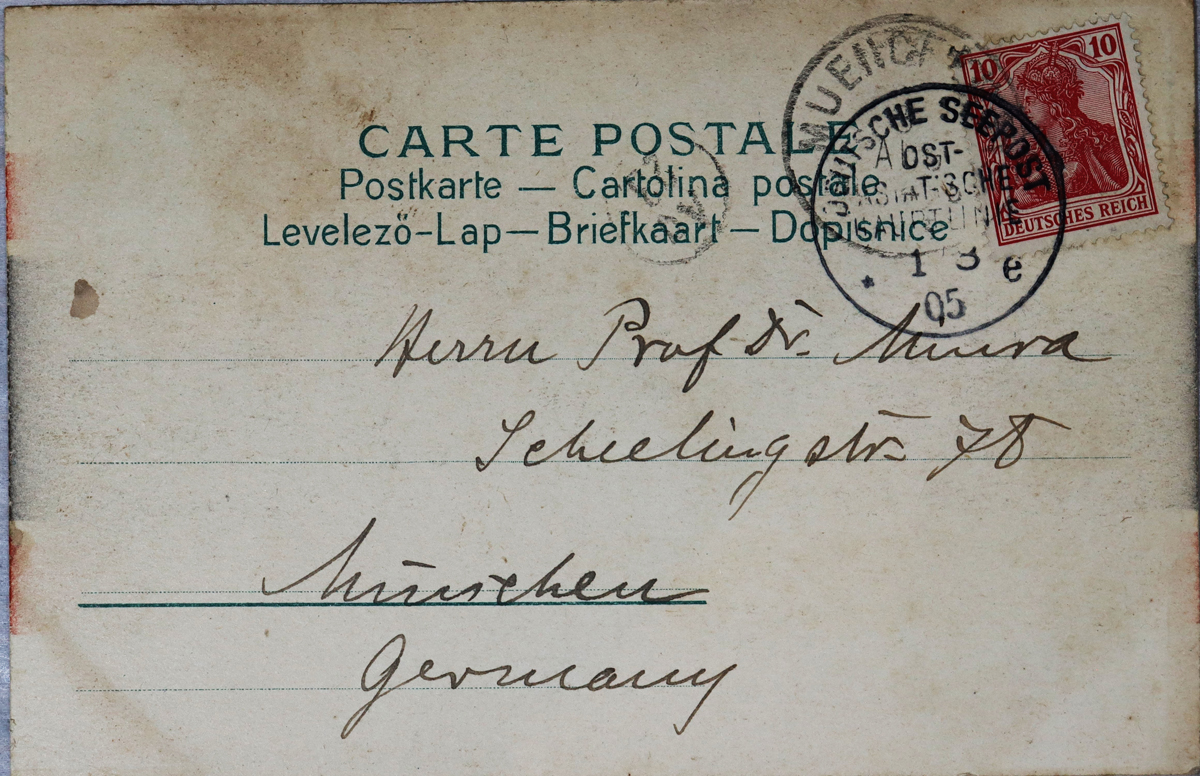 CARTE POSTALE
Postkarte — Cartolina postale
Levelező-Lap — Briefkaart — Dopisnice
MUENCH
DEUTSCHE SEEPOST
OST-
ASIATISCHE
* 1 3 e
05
10 10
DEUTSCHES REICH
Herrn Prof Dr. Miura
Schellingstr. 78
München
Germany